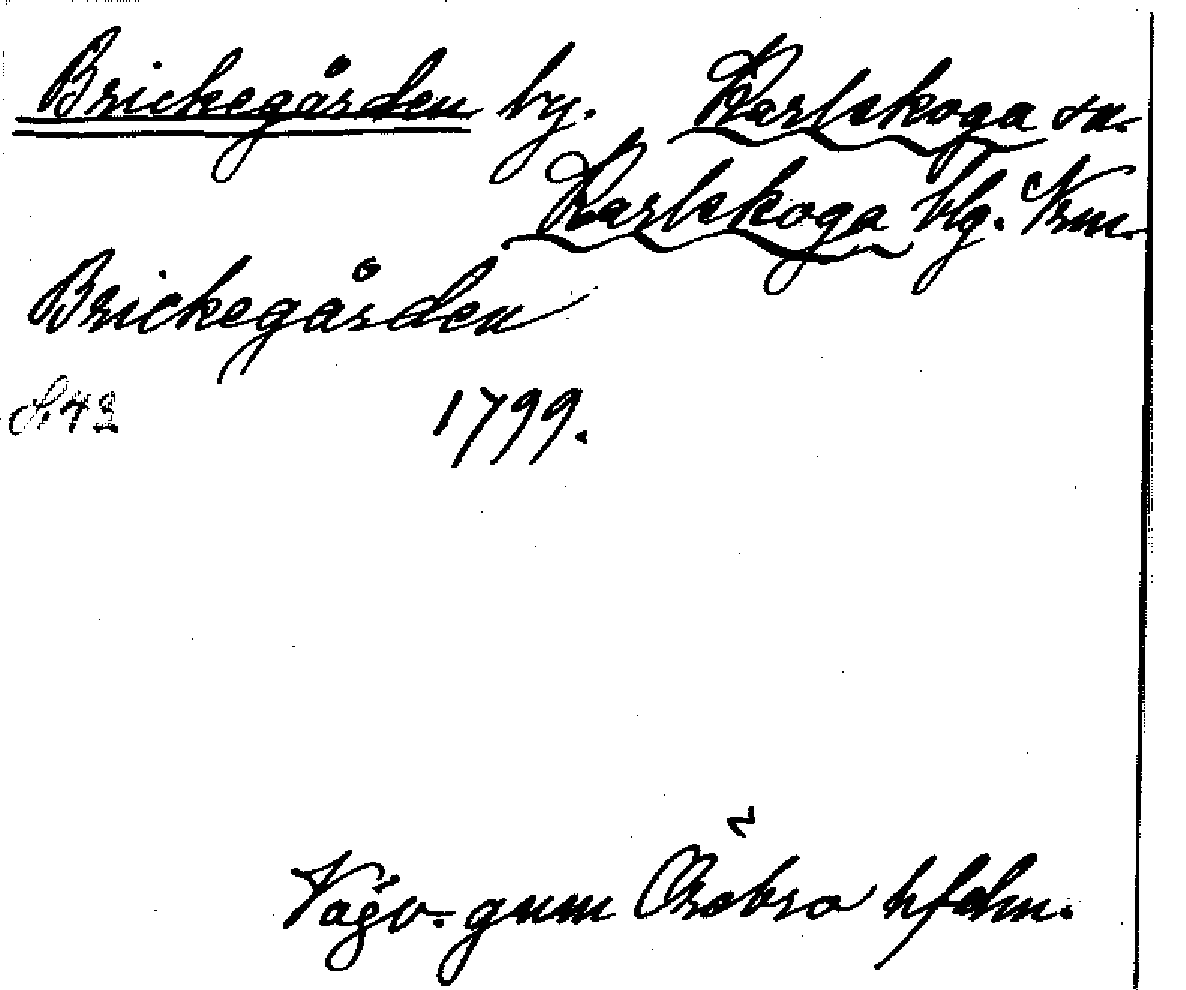 Brickegården by. Karlskoga sn.
Karlskoga blg. Vrm.
Brickegården
S. 42 1799.
Vägv. gnm Örebro hfdm.